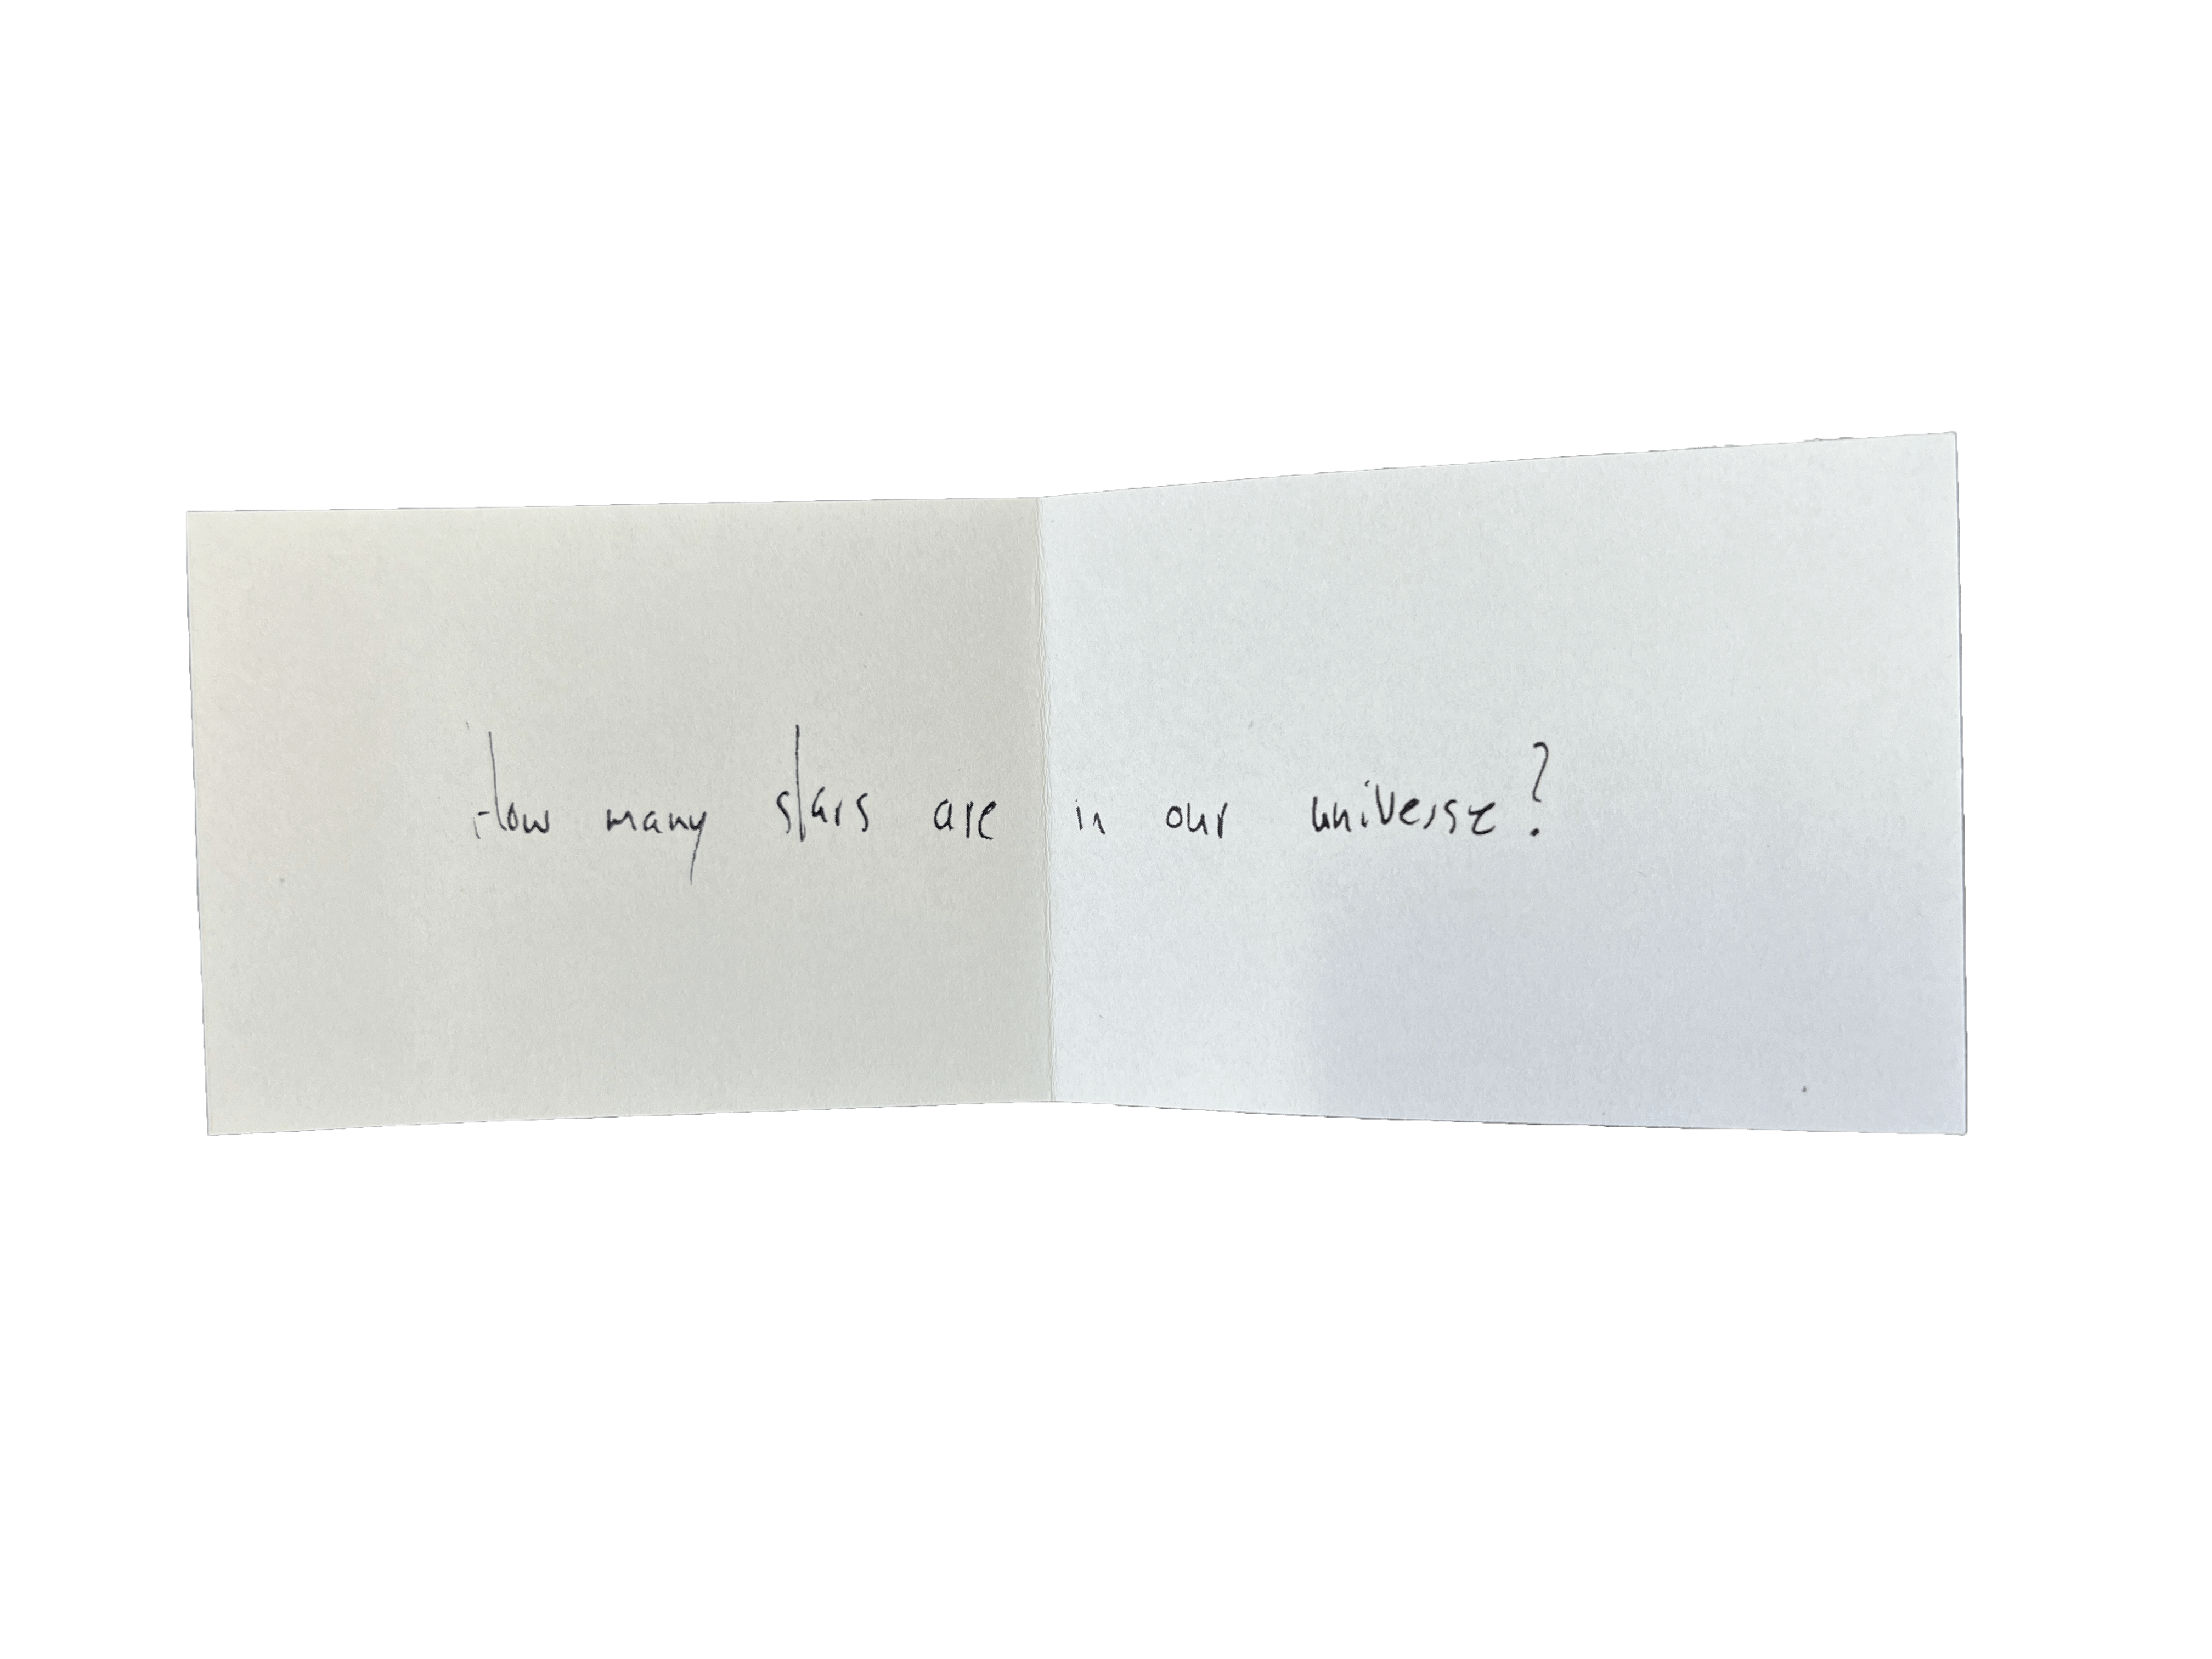 How many stars are in our universe?